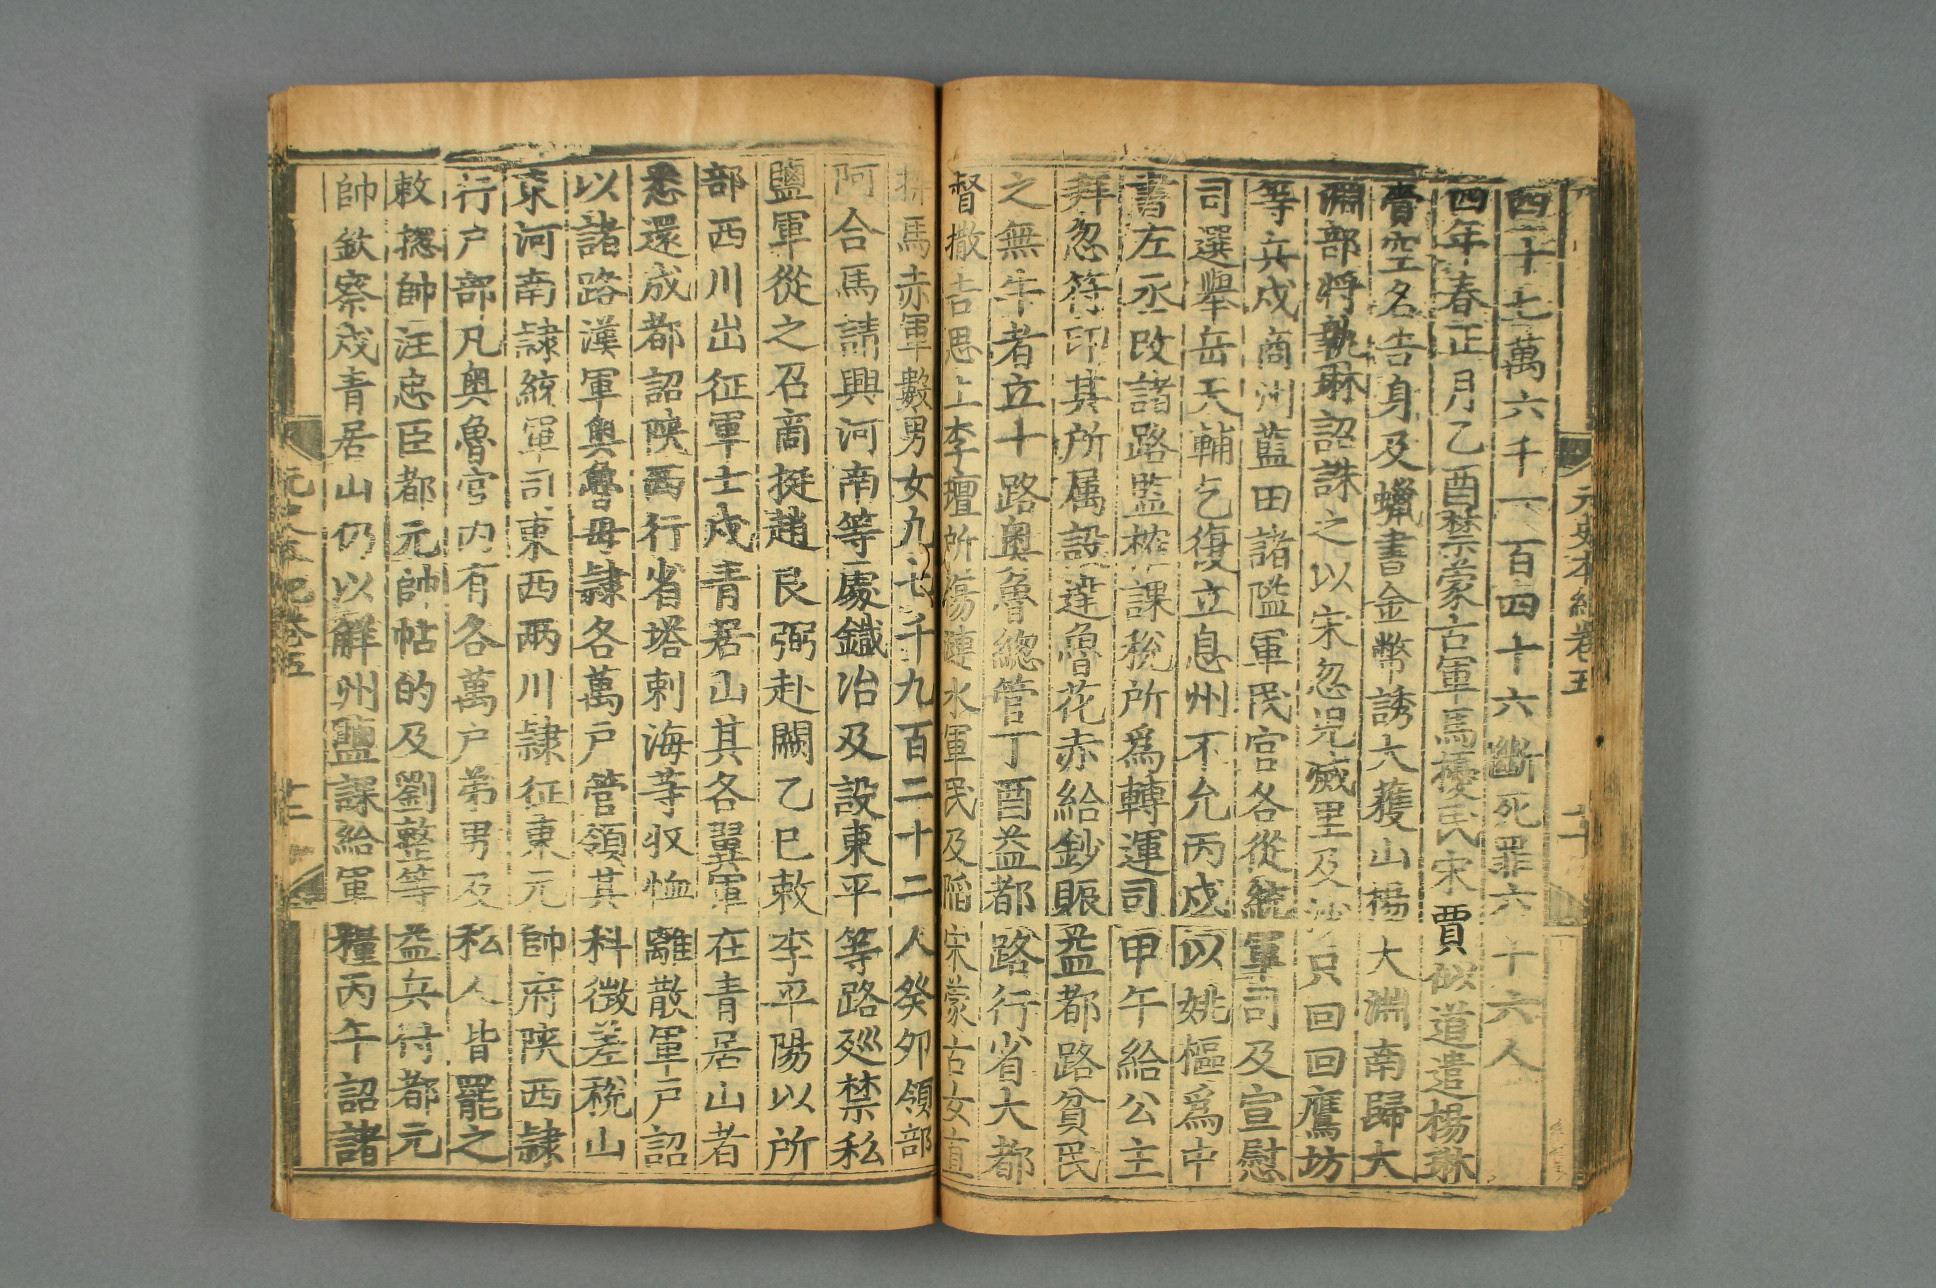 元史本紀卷五 二十
四十七萬六千一百四十六斷死罪六十六人
四年春正月乙酉禁蒙古軍馬擾民宋賈似道遣楊琳
齎空名告身及蠟書金幣誘大獲山楊大淵南歸大
淵部將執琳詔誅之以宋忽兒滅里及沙只回回鷹坊
等兵戍商州藍田諸隘軍民官各從統軍司及宣慰
司選舉岳天輔乞復立息州不允丙戌以姚樞爲中
書左丞改諸路監榷課稅所爲轉運司甲午給公主
拜忽符印其所属設達魯花赤給鈔賑益都路貧民
之無牛者立十路奧魯緫管丁酉益都路行省大都
督撒吉思上李璮所傷漣水軍民及陷宋蒙古女直
探馬赤軍數男女九七千九百二十二人癸夘領部
阿合馬請興河南等處鐵冶及設東平等路廵禁私
鹽軍從之召商挺趙良弼赴闕乙巳敕李平陽以所
部西川出征軍士戍青居山其各翼軍在青居山者
悉還成都詔陝西行省塔剌海等収恤離散軍戶詔
以諸路漢軍奧魯毋隷各萬戶管領其科徵差稅山
東河南隷統軍司東西兩川隷征東元帥府陝西隷
行户部凡奥魯官内有各萬户弟男及私人皆罷之
敕揔帥汪忠臣都元帥帖的及劉整等益兵付都元
帥欽察戍青居山仍以解州鹽課給軍糧丙午詔諸
元史本紀卷五